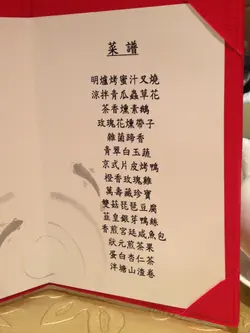 菜譜
明爐烤蜜汁叉燒
涼拌青瓜蟲草花
茶香燻素鵝
玫瑰花燻帶子
雜菌蹄香
青翠白玉蔬
京式片皮烤鴨
橙香玫瑰雞
萬壽藏珍寶
雙菇琵琶豆腐
韮皇銀芽鴨絲
香煎宮廷咸魚包
狀元煎茶果
蛋白杏仁茶
泮塘山渣卷